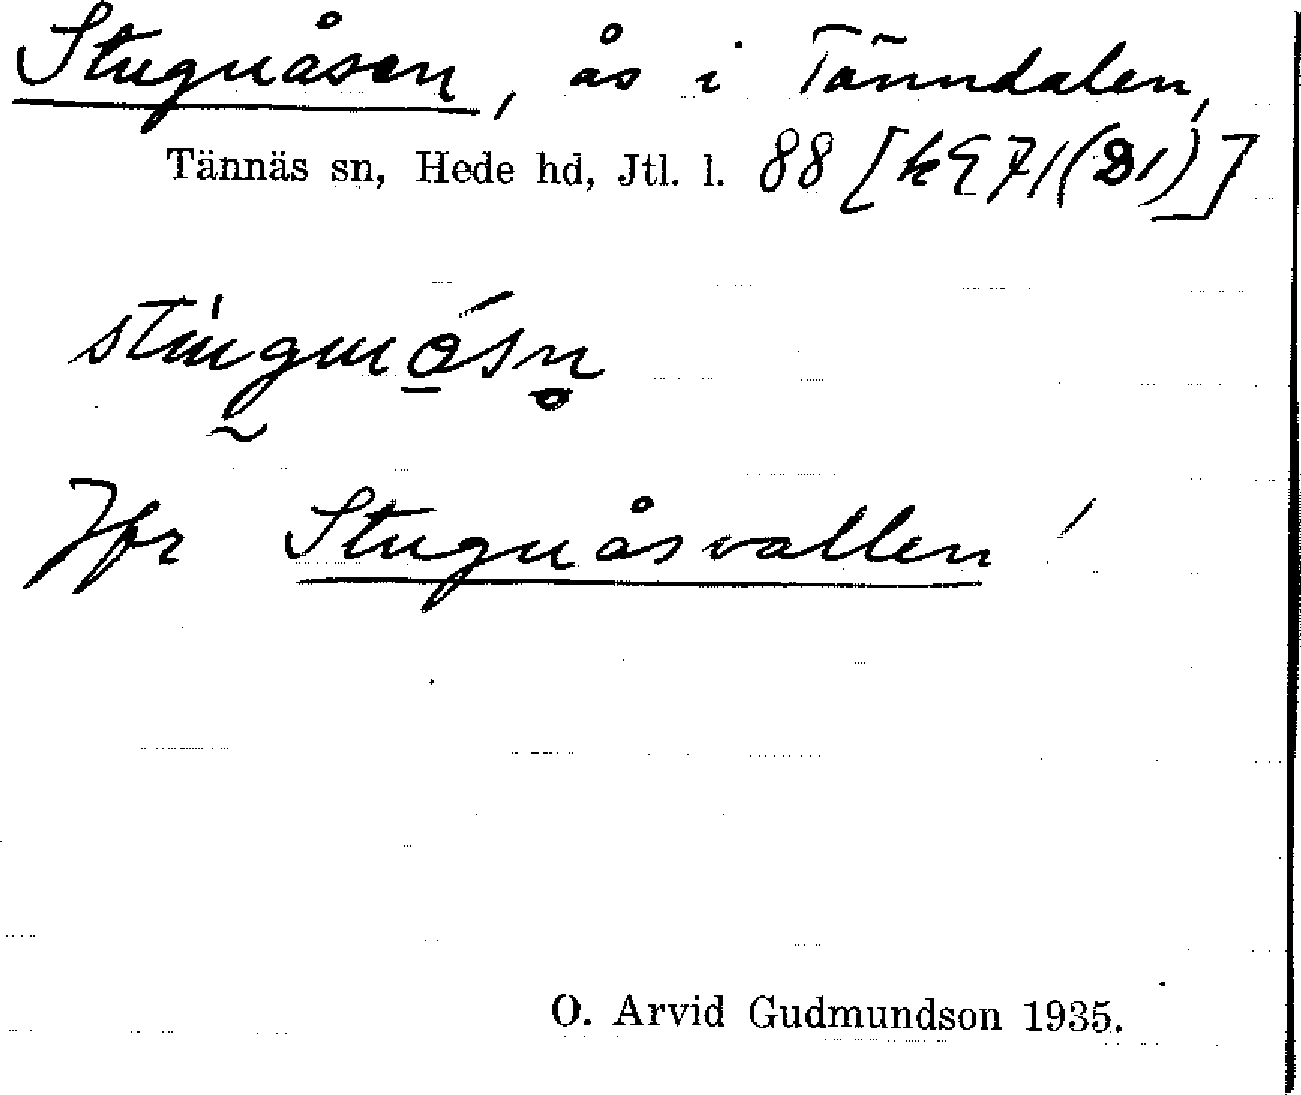 Stuguåsen, ås i Tänndalen,
Tännäs sn, Hede hd, Jtl. l. 88
Jfr Stuguåsvallen!
O. Arvid Gudmundson 1935.